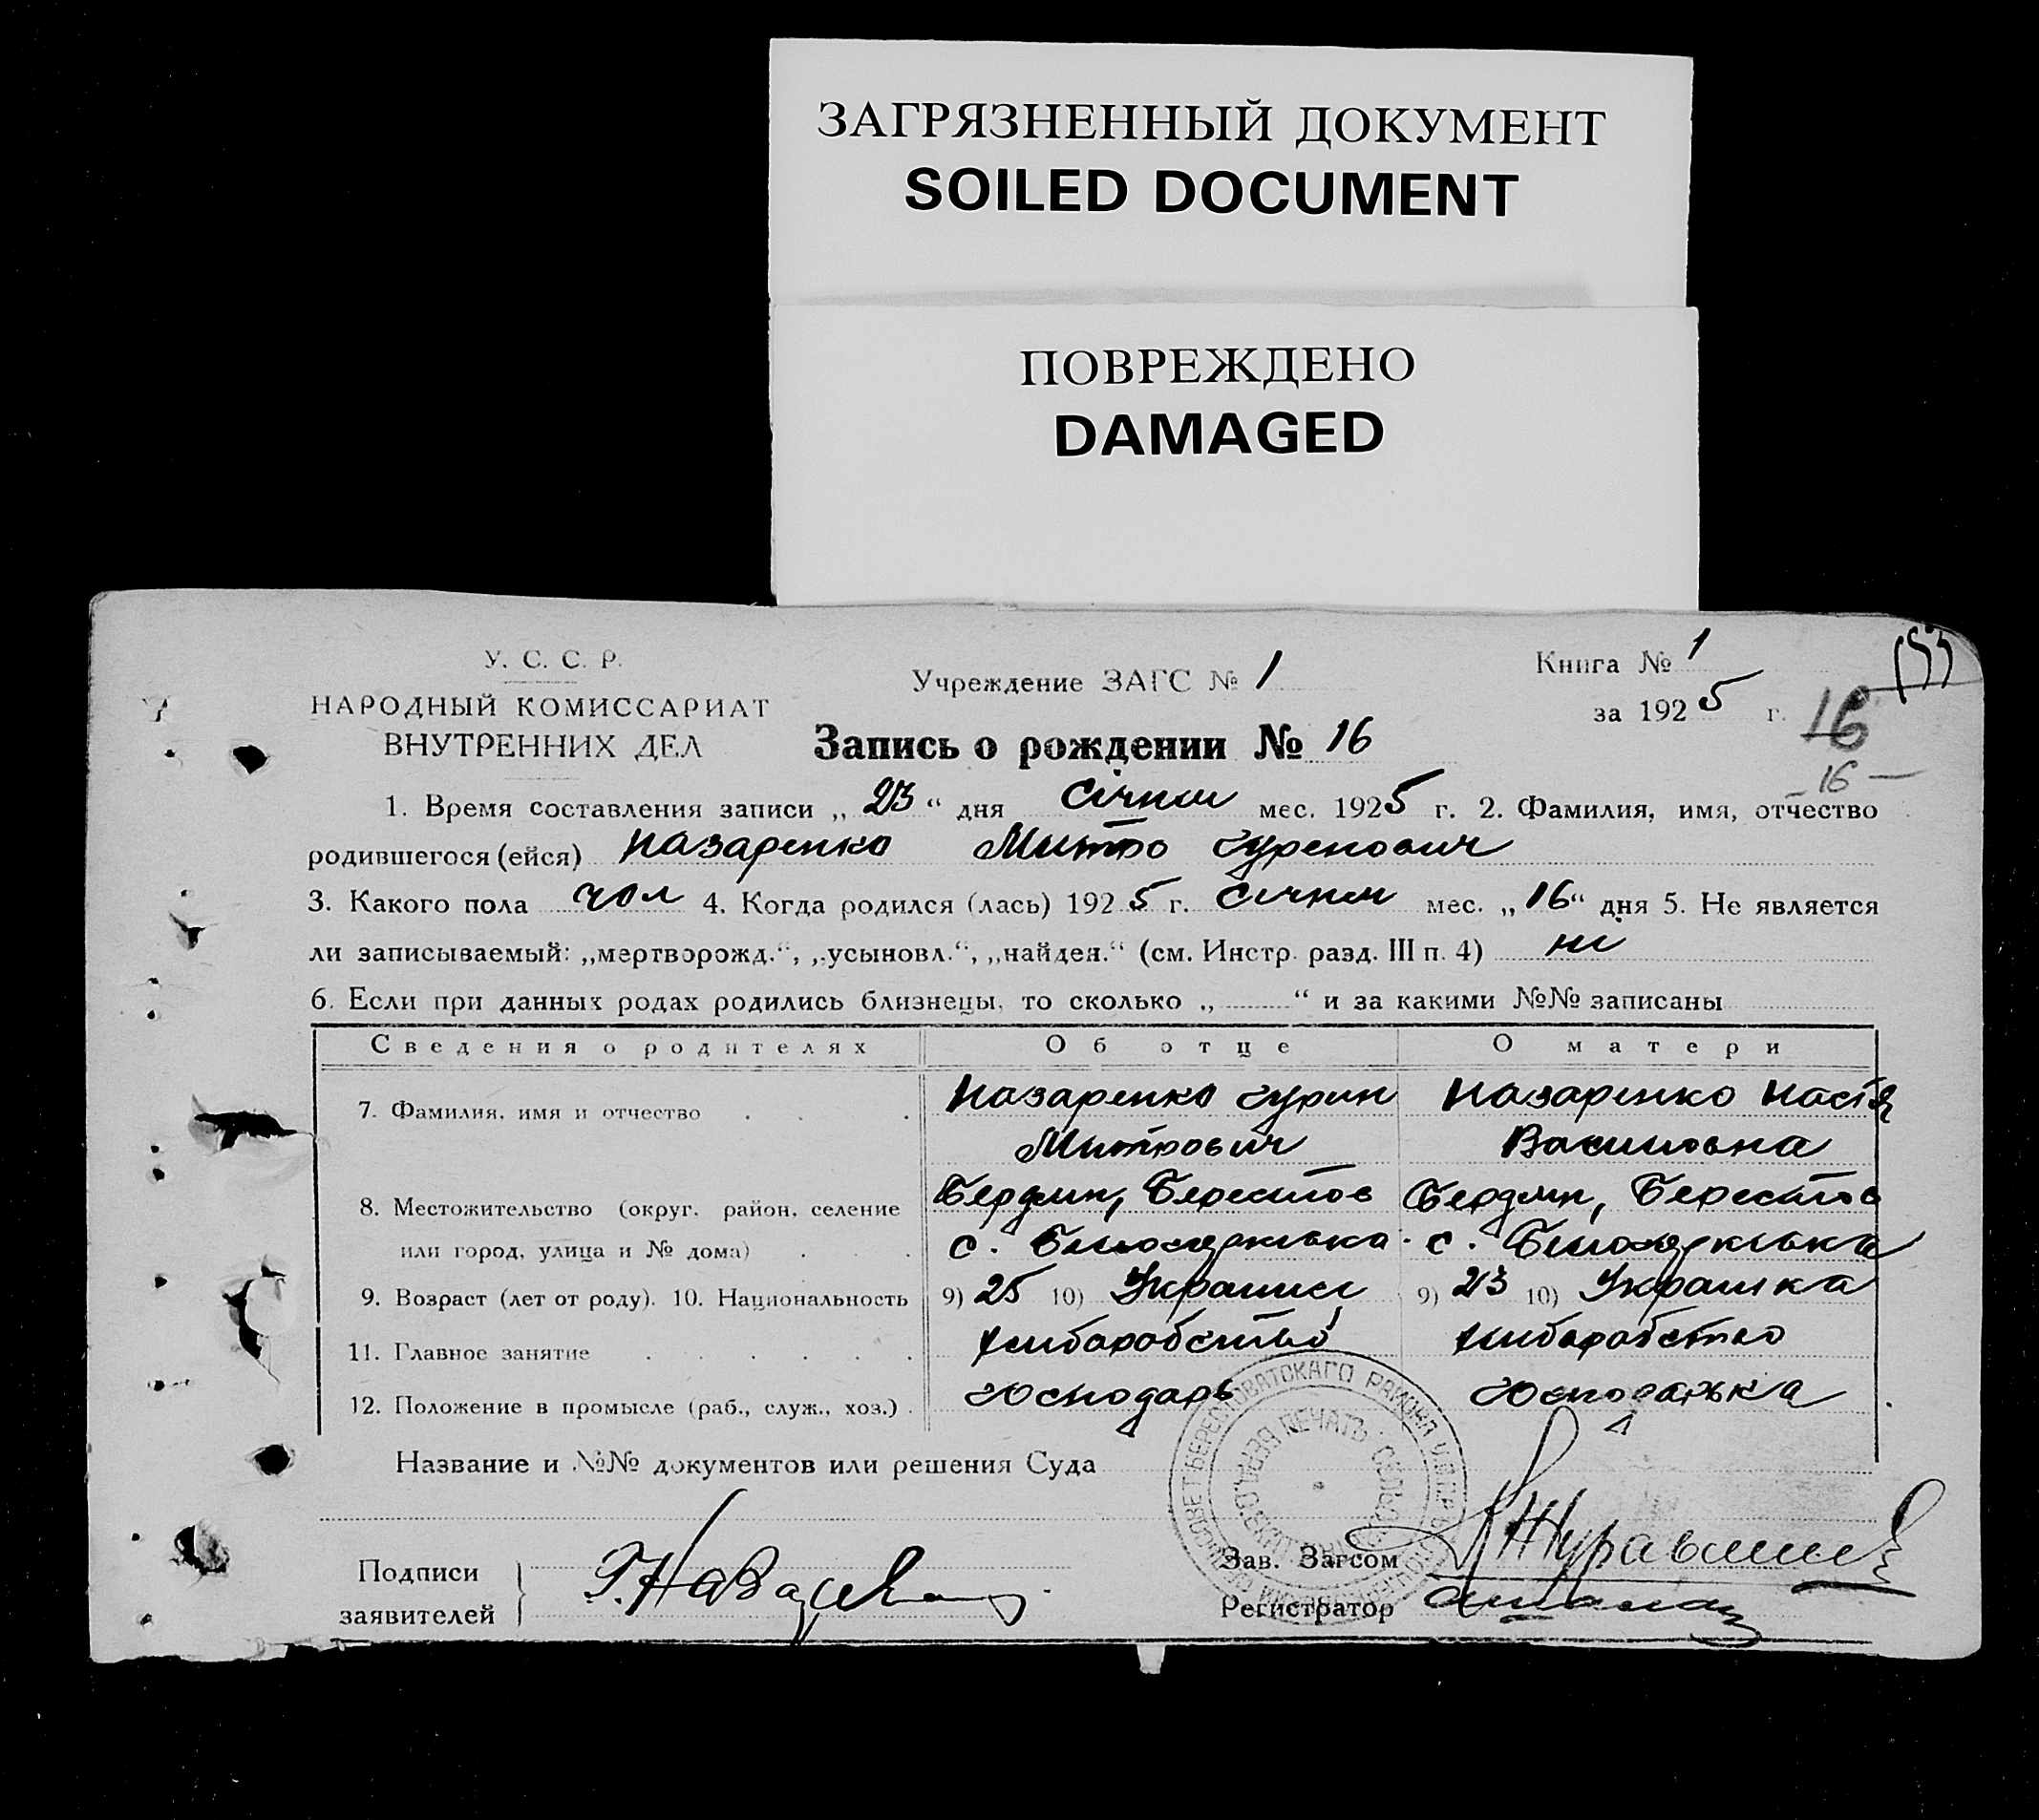 ЗАГРЯЗНЕННЫЙ ДОКУМЕНТ
SOILED DOCUMENT
ПОВРЕЖДЕНО
DAMAGED
У. С. С. Р.
НАРОДНЫЙ КОМИССАРИАТ
ВНУТРЕННИХ ДЕЛ
Учреждение ЗАГС № 1
Книга № 1
за 1925 г.
16
16
Запись о рождении № 16
1. Время составления записи „ 23 “ дня Січня мес. 1925 г. 2. Фамилия, имя, отчество
родившегося (ейся) Назаренко Митро Гуренович
3. Какого пола чол 4. Когда родился (лась) 1925 г. Січня мес. „ 16 “ дня 5. Не является
ли записываемый: „мертворожд.“, „усыновл.“, „найден.“ (см. Инстр. разд. III п. 4) ні
6. Если при данных родах родились близнецы, то сколько „ “ и за какими №№ записаны
Сведения о родителях Об отце О матери
7. Фамилия, имя и отчество Назаренко Гурин Назаренко Настя
Митрович Василовна
8. Местожительство (округ, район, селение Бердян, Берестов Бердян, Берестов
или город, улица и № дома) с. с.
9. Возраст (лет от роду). 10. Национальность 9) 25 10) Украинец 9) 23 10) Украинка
11. Главное занятие хлиборобство хлиборобство
12. Положение в промысле (раб., служ., хоз.) Господарь Господарька
Название и №№ документов или решения Суда
Подписи
заявителей Г. Назаренко
Зав. Загсом
Регистратор